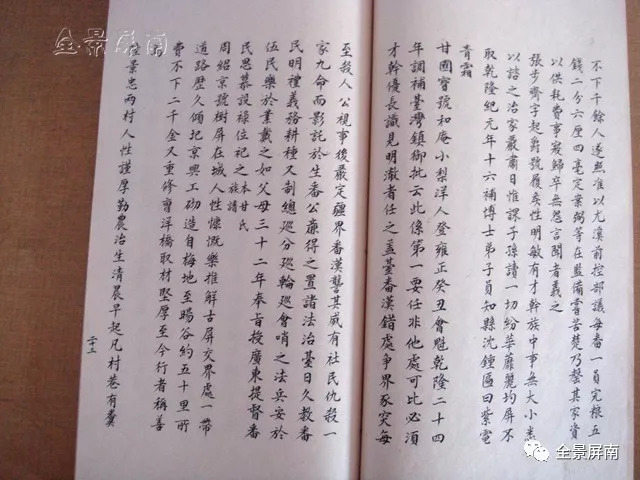 不下千餘人遂照准以尤溪前控部議每畨一員完糧五
錢二分六厘四毫定業弼等在監備嘗苦楚乃罄其家資
以供耗費事寢歸卒無怨言聞者義之
張步齊字起爵號履矣性明敏有才幹族中事無大小悉
以諮之治家嚴肅日惟課子孫讀一切紛華靡麗均屏不
取乾隆紀元年十六補博士弟子員知縣沈鍾區曰紫電
青霜
甘國寶號和庵小梨洋人登雍正癸丑會魁乾隆二十四
年調補臺灣鎮御批云此係第一要任非他處可比必須
才幹優長識見明澈者任之蓋臺番漢錯處爭界豕突每
至殺人公視事後嚴定疆界番漢讋其威有社民仇殺一
家九命而影託於生番公廉得之置諸法治臺日久教番
民明禮義務耕種又制總巡分巡輪巡會哨之法兵安於
伍民樂於業戴之如父母三十二年奉旨授廣東提督番
民思慕設祿位祀之本甘氏族譜
周紹京號樹屏在城人性慷慨樂推解古屏交界處一帶
道路歷久傾圮京興工砌造自梅地至暘谷約五十里所
費不下二千金又重修寶洋橋取材堅厚至今行者稱善
景忠兩村人性謹厚勤農治生清晨早起凡村巷有糞
二十二
全景屏南
全景屏南